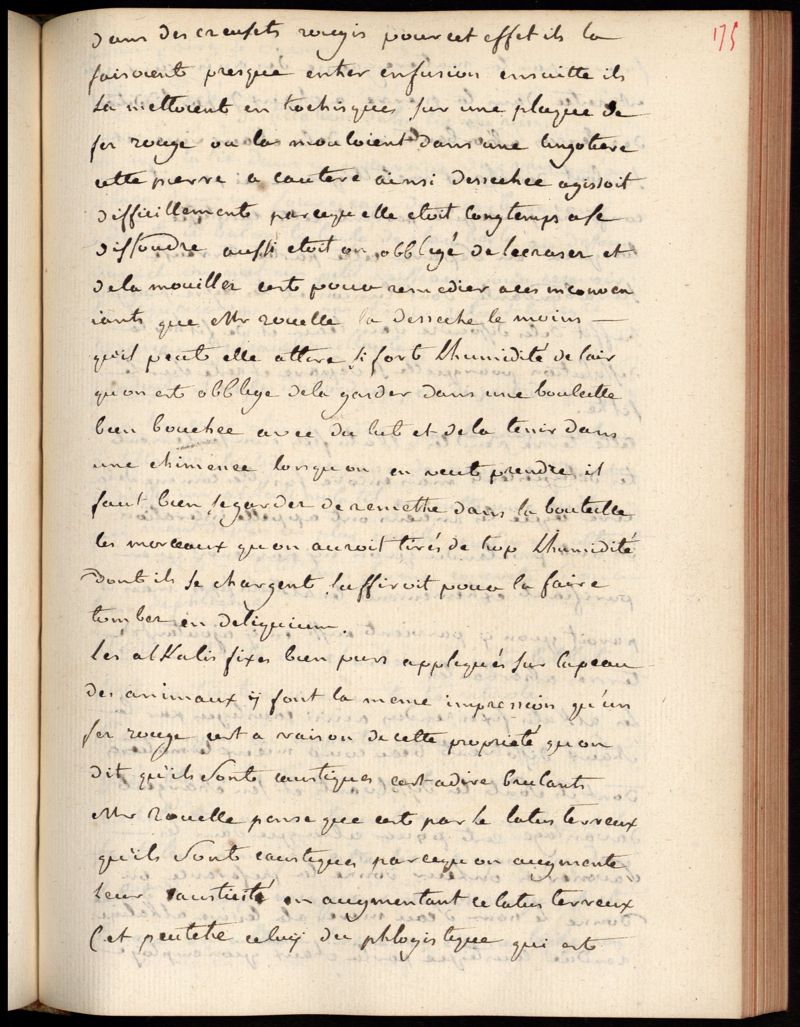 175
dans des creusets rougis pour cet effet ils la
faisoient presque entrer en fusion ensuitte ils
la mettoient en trochisques sur une plaque de
fer rouge ou la mouloient dans une lingotiere
cette pierre a cautere ainsi dessechee agissoit
difficillement parcequ elle etoit longtemps a se
dissoudre aussi etoit on obbligé de lecraser et
de la mouiller cest pour remedier a ces inconven
iants que Mr rouelle la desseche le moins —
qu'il peut elle attire si fort Lhumidité de lair
qu on est obblige de la garder dans une bouteille
bien bouchee avec du lut et de la tenir dans
une chiminee lorsqu on en veut prendre il
faut bien se garder de remettre dans la bouteille
les morceaux qu on auroit tirés de trop Lhumidité
dont ils se chargent suffiroit pour la faire
tomber en deliquium.
Les alKalis fixes bien purs appliqués sur la peau
des animaux ÿ font la meme impression qu'un
fer rouge cest a raison de cette proprieté qu on
dit qu'ils sont caustiques, cest adire brulants
Mr rouelle pense que cest par le latus terreux
qu'ils sont caustiques parcequ on augmente
leur causticité en augmentant ce latus terreux
(et peutetre celuÿ du phlogistique qui est